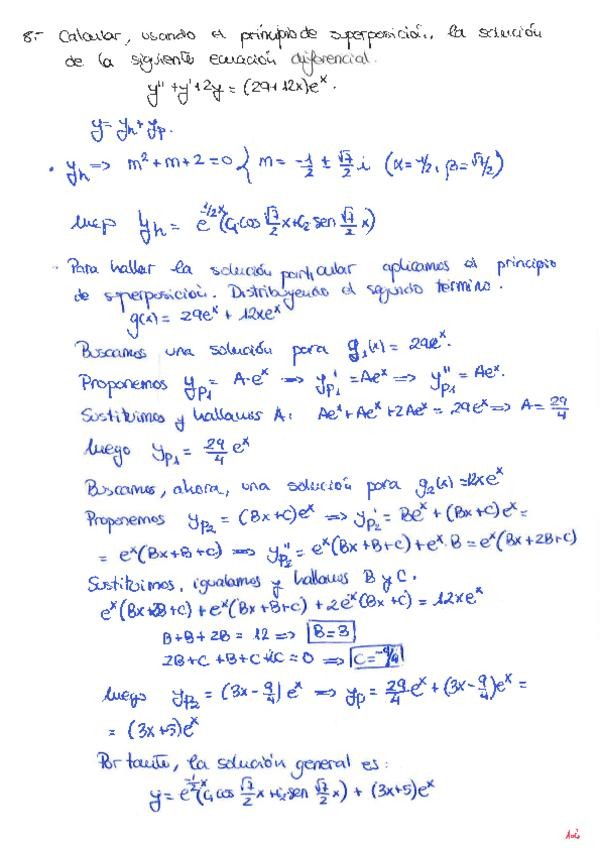 8.- Calcular, usando el principio de superposición, la solución
de la siguiente ecuación diferencial.
y'' + y' + 2y = (29 + 12x)eˣ.
y = y_h + y_p.
• y_h => m² + m + 2 = 0 { m = -1/2 ± √7/2 i (α = -1/2, β = √7/2)
luego y_h = e^(-1/2 x) (C₁ cos √7/2 x + C₂ sen √7/2 x)
- Para hallar la solución particular aplicamos el principio
de superposición. Distribuyendo el segundo término.
g(x) = 29eˣ + 12xeˣ
Buscamos una solución para g₁(x) = 29eˣ.
Proponemos y_p₁ = A·eˣ => y_p₁' = Aeˣ => y_p₁'' = Aeˣ.
Sustituimos y hallamos A: Aeˣ + Aeˣ + 2Aeˣ = 29eˣ => A = 29/4
luego y_p₁ = 29/4 eˣ
Buscamos, ahora, una solución para g₂(x) = 12xeˣ
Proponemos y_p₂ = (Bx + C)eˣ => y_p₂' = Beˣ + (Bx + C)eˣ =
= eˣ(Bx + B + C) => y_p₂'' = eˣ(Bx + B + C) + eˣ·B = eˣ(Bx + 2B + C)
Sustituimos, igualamos y hallamos B y C.
eˣ(Bx + 2B + C) + eˣ(Bx + B + C) + 2eˣ(Bx + C) = 12xeˣ
B + B + 2B = 12 => B = 3
2B + C + B + C + 2C = 0 => C = -9/4
luego y_p₂ = (3x - 9/4) eˣ => y_p = 29/4 eˣ + (3x - 9/4)eˣ =
= (3x + 5)eˣ
Por tanto, la solución general es:
y = e^(-1/2 x) (C₁ cos √7/2 x + C₂ sen √7/2 x) + (3x + 5)eˣ